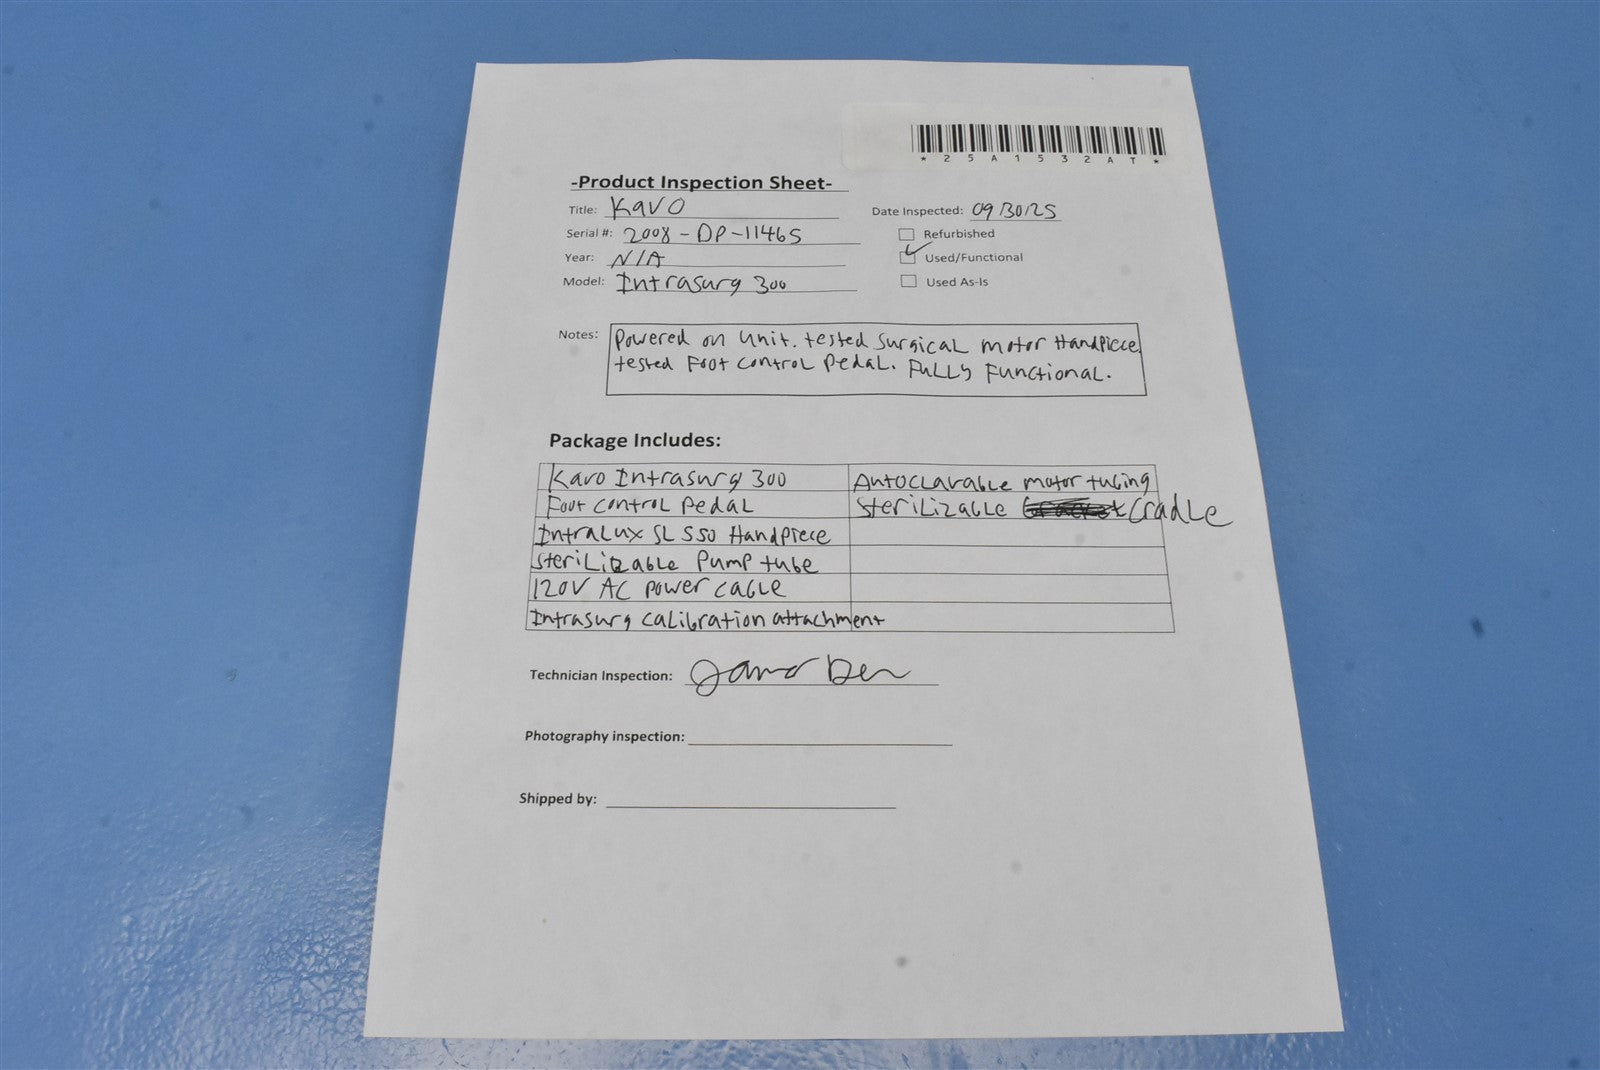 *25A1532AT*
-Product Inspection Sheet-
Title: KaVO
Date Inspected: 09/30/25
Serial #: 2008-DP-11465
Refurbished
Year: N/A
Used/Functional
Model: Intrasurg 300
Used As-Is
Notes: Powered on unit. tested surgical motor Handpiece
tested Foot control Pedal. Fully Functional.
Package Includes:
Kavo Intrasurg 300
Autoclavable motor tubing
Foot control Pedal
Sterilizable Cradle
IntraLux SL 550 Handpiece
Sterilizable Pump tube
120V AC power cable
Intrasurg calibration attachment
Technician Inspection:
Photography inspection:
Shipped by: